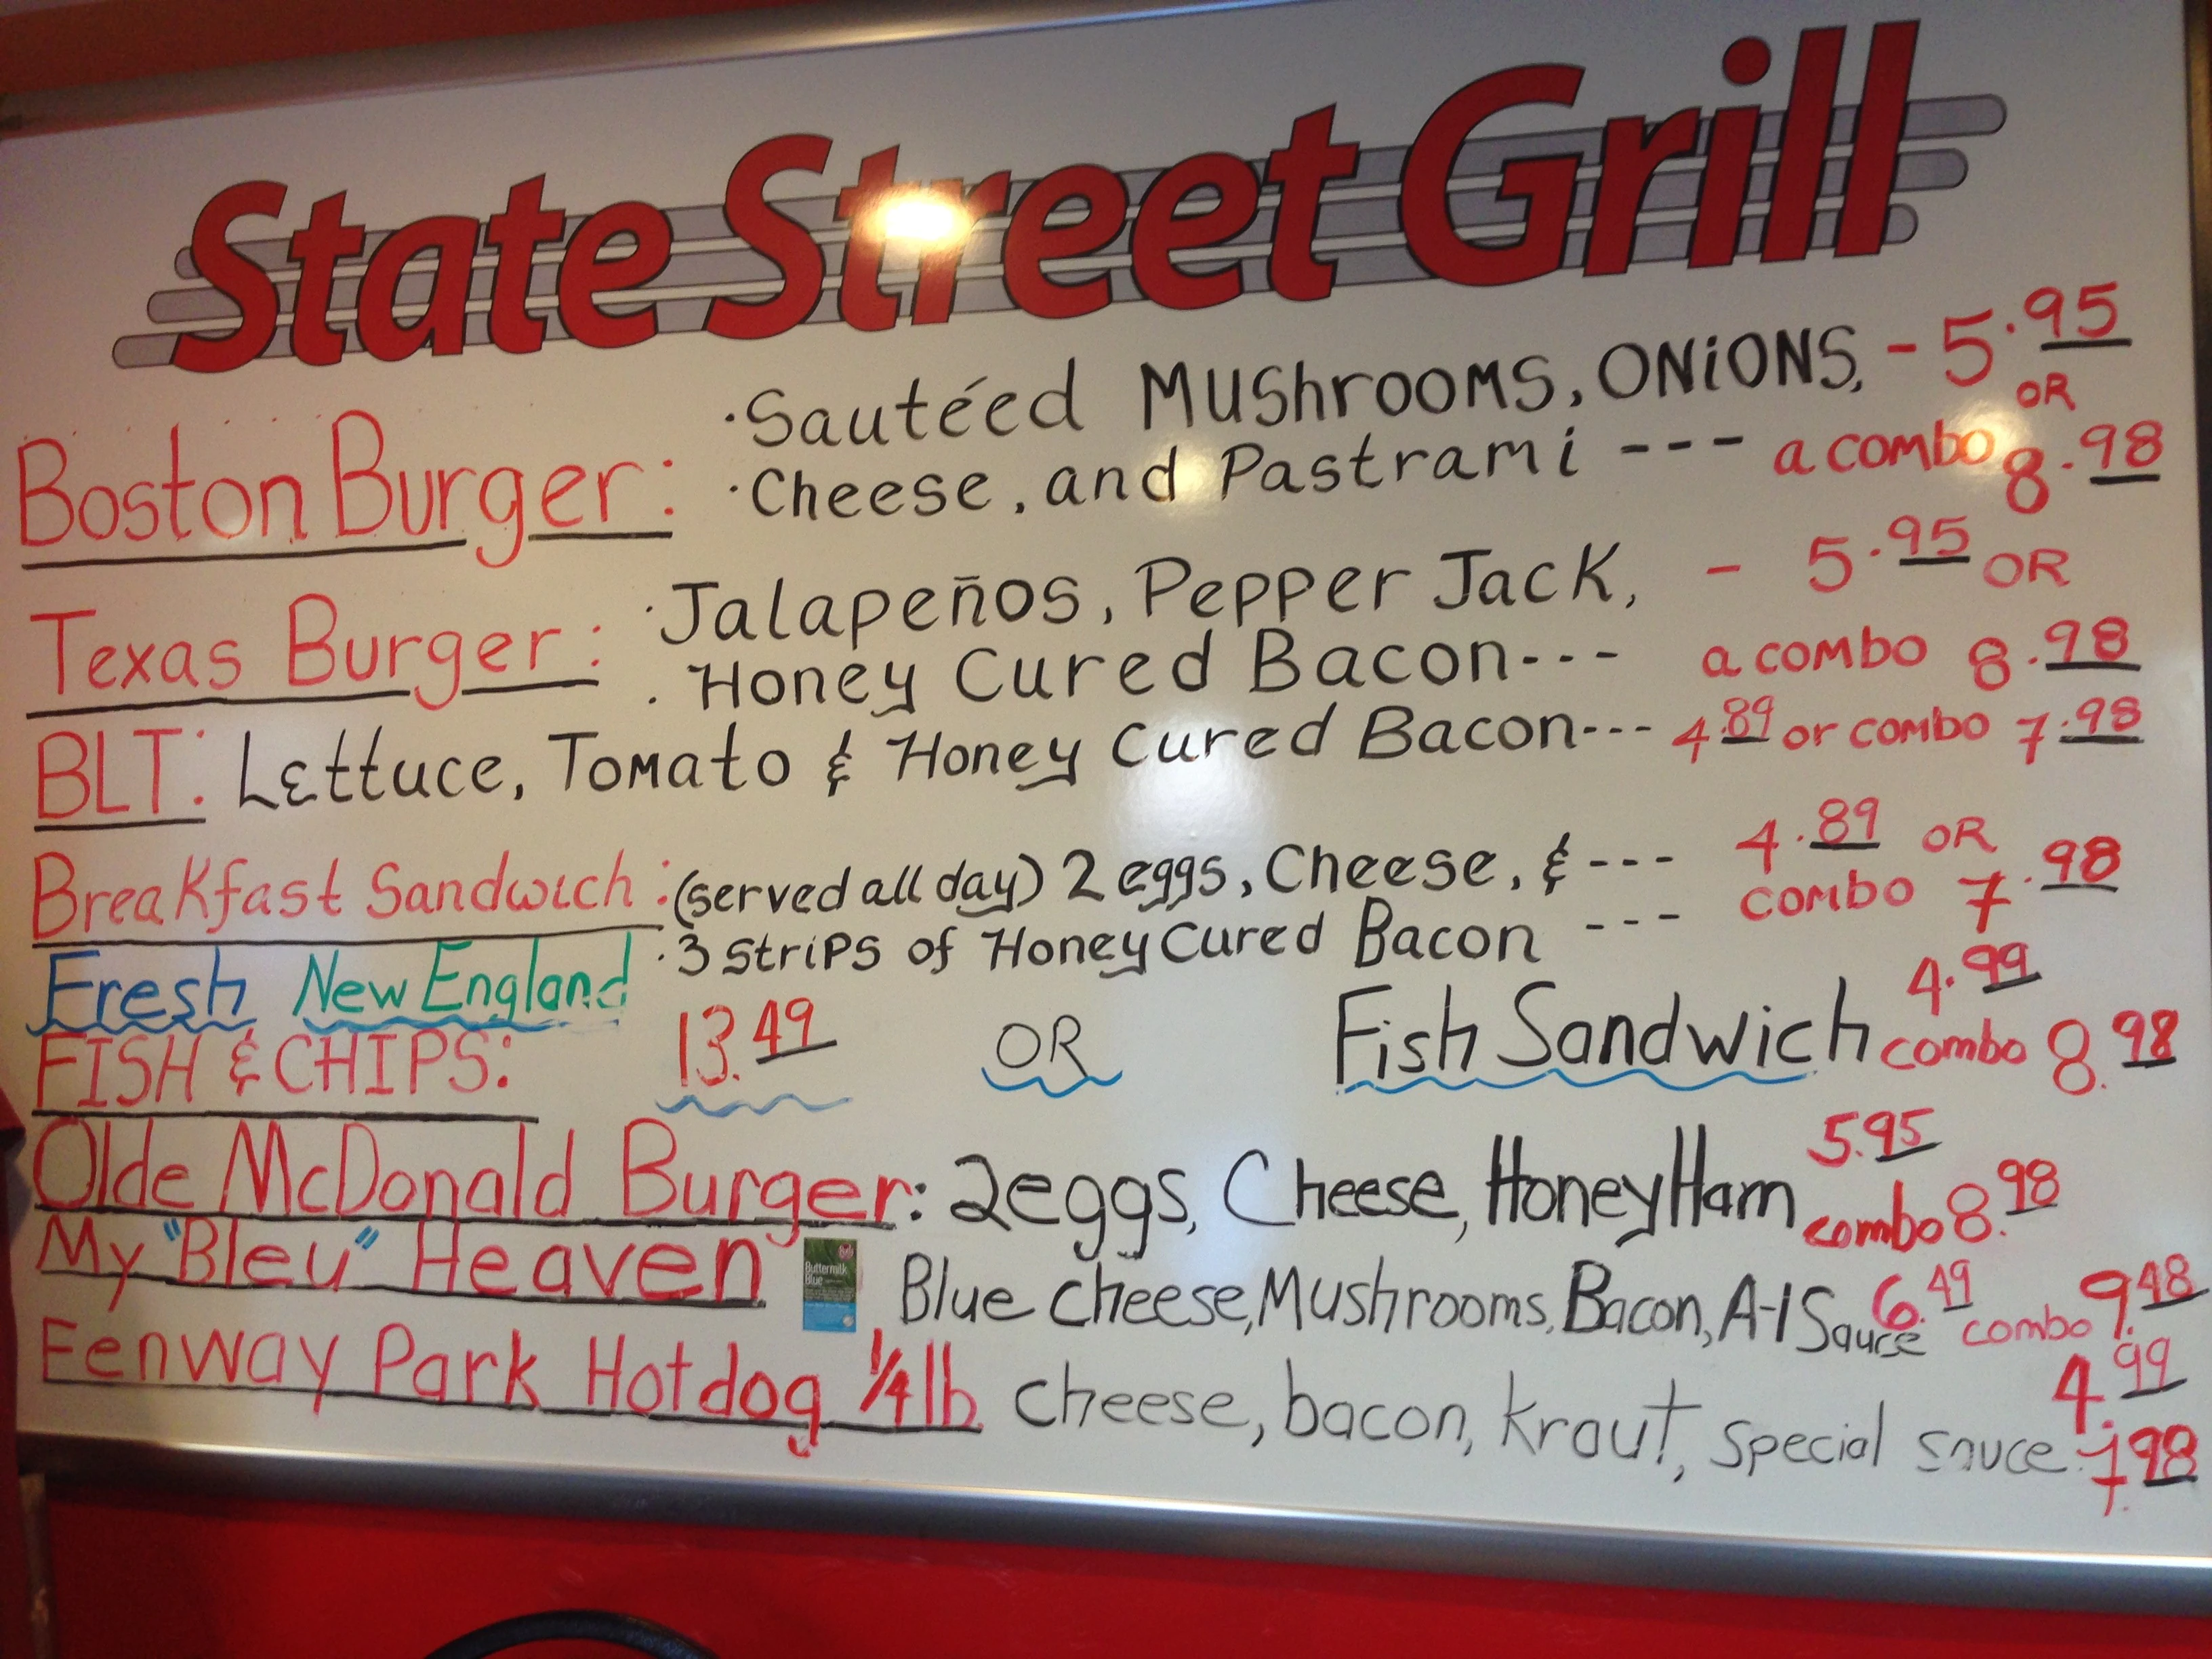 State Street Grill
Boston Burger: ·Sautéed Mushrooms, Onions, - 5.95 OR
·Cheese, and Pastrami --- a combo 8.98
Texas Burger: ·Jalapeños, Pepper Jack, - 5.95 OR
·Honey Cured Bacon --- a combo 8.98
BLT: Lettuce, Tomato & Honey Cured Bacon --- 4.89 or combo 7.98
Breakfast Sandwich: (served all day) 2 eggs, Cheese, & --- 4.89 OR
·3 strips of Honey Cured Bacon --- combo 7.98
Fresh New England
FISH & CHIPS: 13.49 OR Fish Sandwich 4.99 combo 8.98
Olde McDonald Burger: 2 eggs, Cheese, Honey Ham 5.95 combo 8.98
My "Bleu" Heaven Buttermilk Blue Blue cheese, Mushrooms, Bacon, A-1 Sauce 6.49 combo 9.48
Fenway Park Hotdog 1/4 lb. cheese, bacon, kraut, special sauce 4.99
7.98